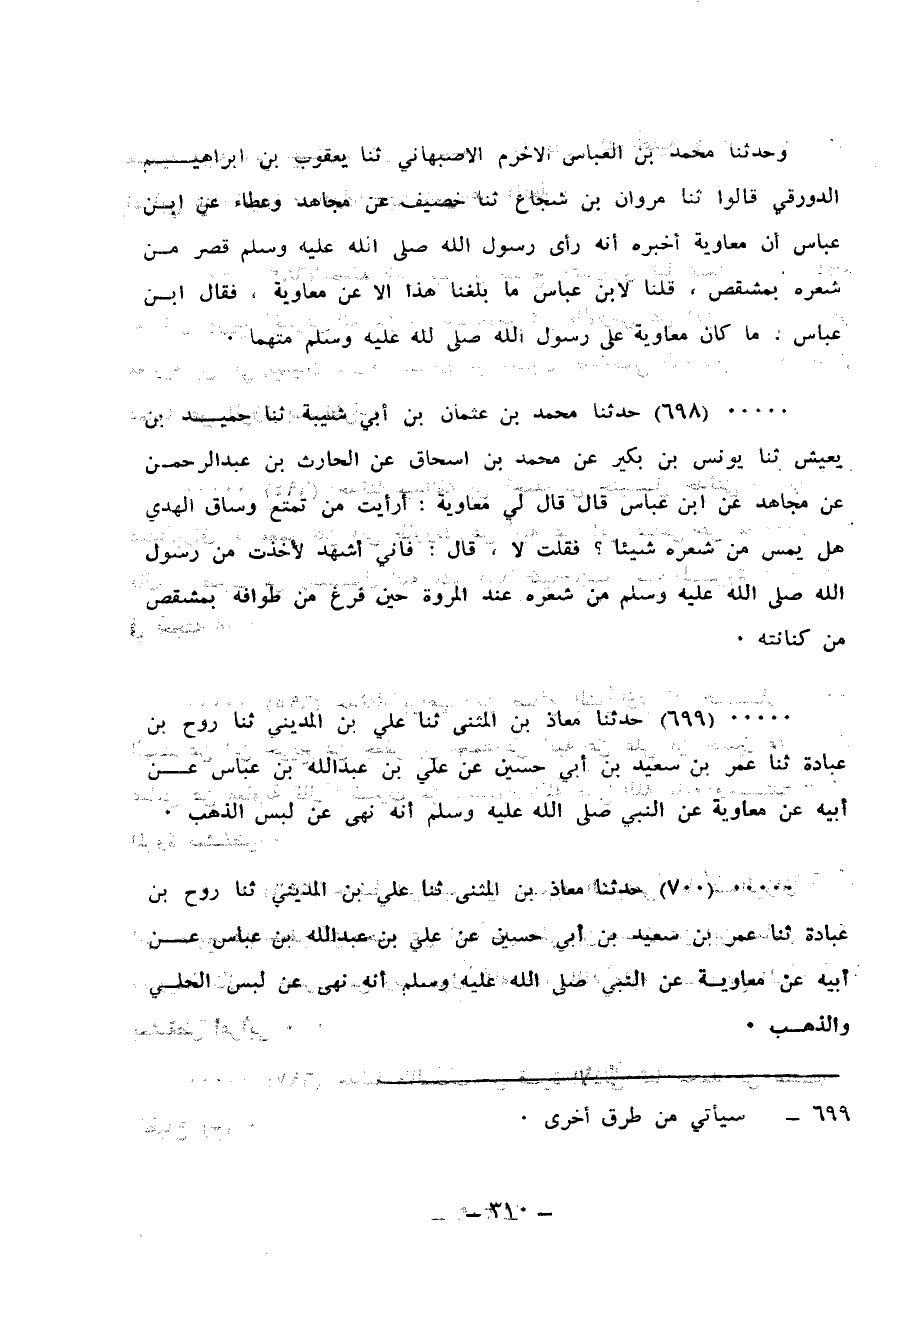 وحدثنا محمد بن العباس الاخرم الاصبهاني ثنا يعقوب بن ابراهيم
الدورقي قالوا ثنا مروان بن شجاع ثنا خصيف عن مجاهد وعطاء عن ابن
عباس أن معاوية أخبره أنه رأى رسول الله صلى الله عليه وسلم قصر من
شعره بمشقص ، قلنا لابن عباس ما بلغنا هذا الا عن معاوية ، فقال ابن
عباس : ما كان معاوية على رسول الله صلى لله عليه وسلم متهما ٠
٠٠٠٠٠ (٦٩٨) حدثنا محمد بن عثمان بن أبي شيبة ثنا حميد بن
يعيش ثنا يونس بن بكير عن محمد بن اسحاق عن الحارث بن عبدالرحمن
عن مجاهد عن ابن عباس قال قال لي معاوية : أرأيت من تمتع وساق الهدي
هل يمس من شعره شيئا ؟ فقلت لا ، قال : فأني أشهد لأخذت من رسول
الله صلى الله عليه وسلم من شعره عند المروة حين فرغ من طوافه بمشقص
من كنانته ٠
٠٠٠٠٠ (٦٩٩) حدثنا معاذ بن المثنى ثنا علي بن المديني ثنا روح بن
عبادة ثنا عمر بن سعيد بن أبي حسين عن علي بن عبدالله بن عباس عن
أبيه عن معاوية عن النبي صلى الله عليه وسلم أنه نهى عن لبس الذهب ٠
٠٠٠٠٠ (٧٠٠) حدثنا معاذ بن المثنى ثنا علي بن المديني ثنا روح بن
عبادة ثنا عمر بن سعيد بن أبي حسين عن علي بن عبدالله بن عباس عن
أبيه عن معاوية عن النبي صلى الله عليه وسلم أنه نهى عن لبس الحلي
والذهب ٠
٦٩٩ – سيأتي من طرق أخرى ٠
– ٣١٠ –